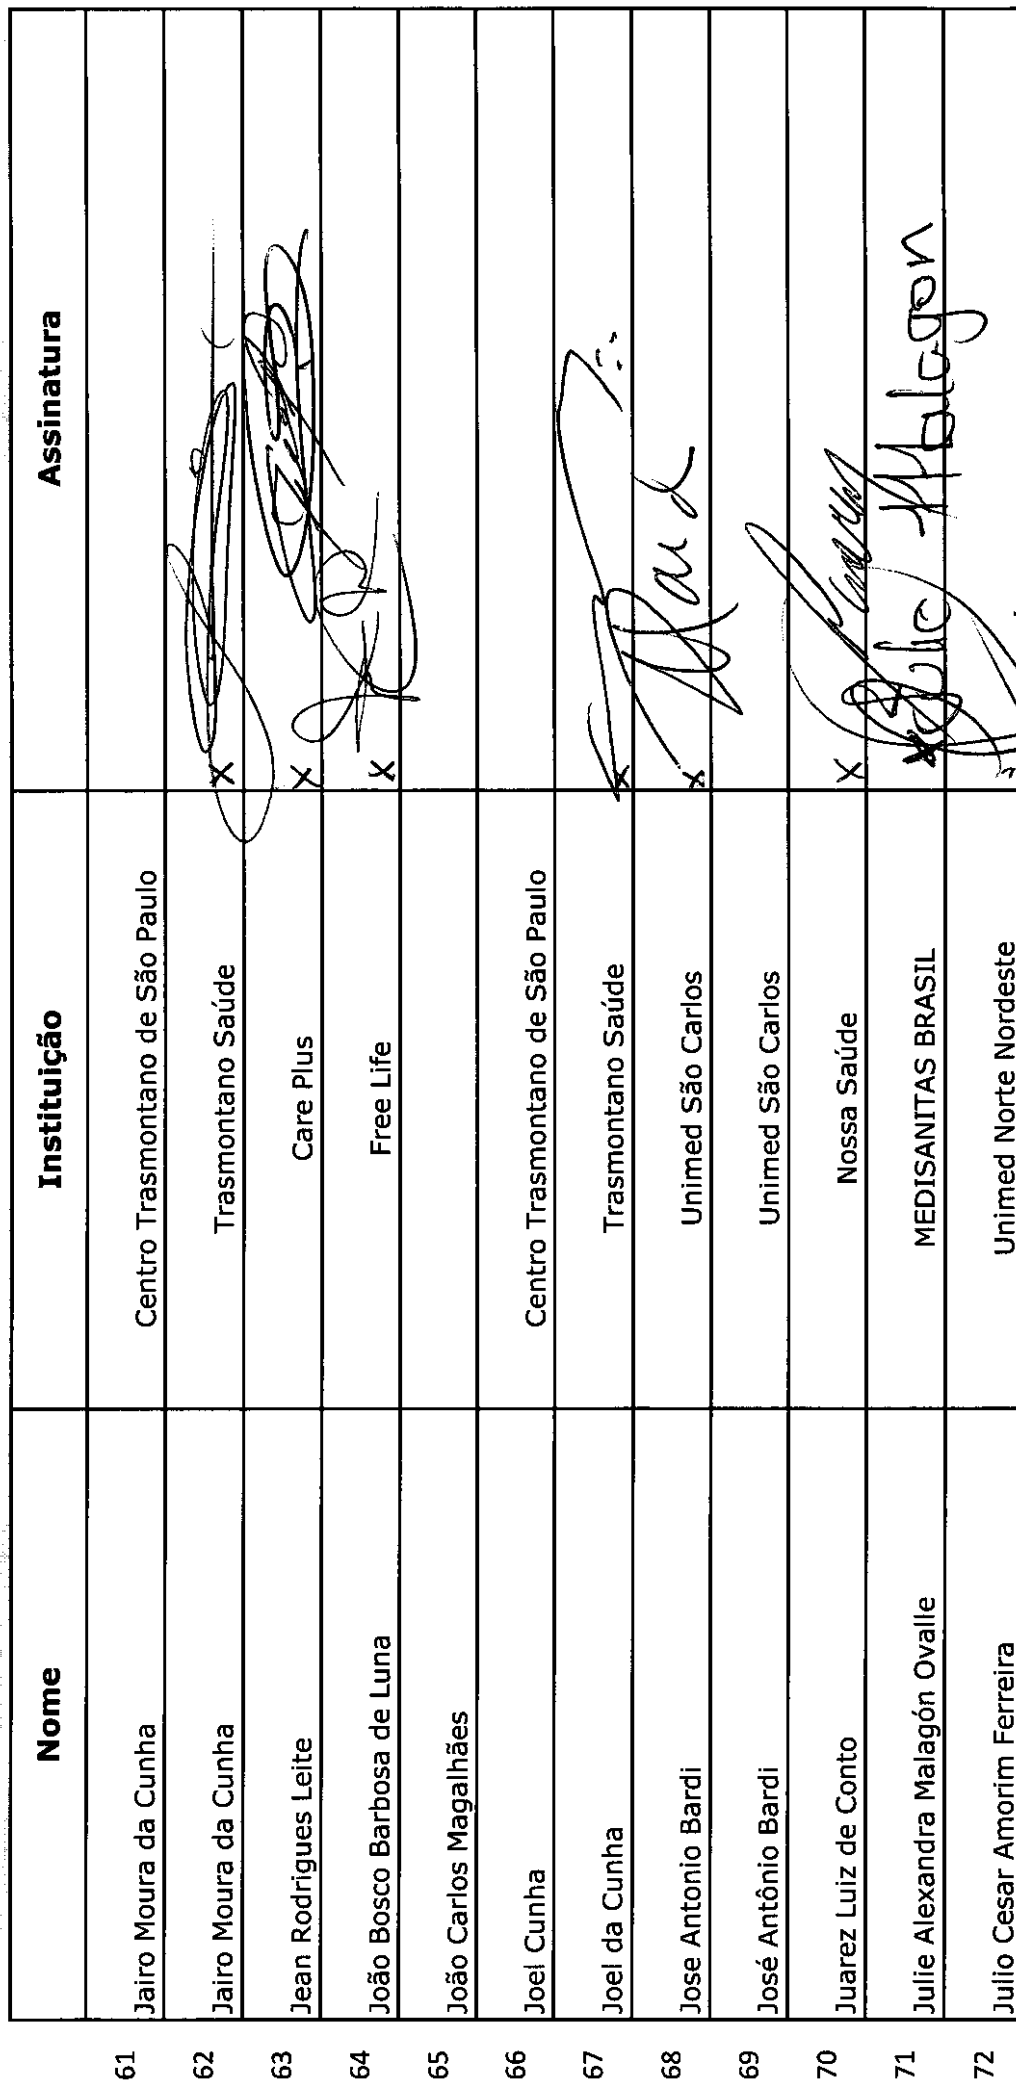 Nome Instituição Assinatura
61 Jairo Moura da Cunha Centro Trasmontano de São Paulo
62 Jairo Moura da Cunha Trasmontano Saúde X
63 Jean Rodrigues Leite Care Plus X
64 João Bosco Barbosa de Luna Free Life X
65 João Carlos Magalhães
66 Joel Cunha Centro Trasmontano de São Paulo
67 Joel da Cunha Trasmontano Saúde X
68 Jose Antonio Bardi Unimed São Carlos X
69 José Antônio Bardi Unimed São Carlos
70 Juarez Luiz de Conto Nossa Saúde X
71 Julie Alexandra Malagón Ovalle MEDISANITAS BRASIL X Julie Malagon
72 Julio Cesar Amorim Ferreira Unimed Norte Nordeste